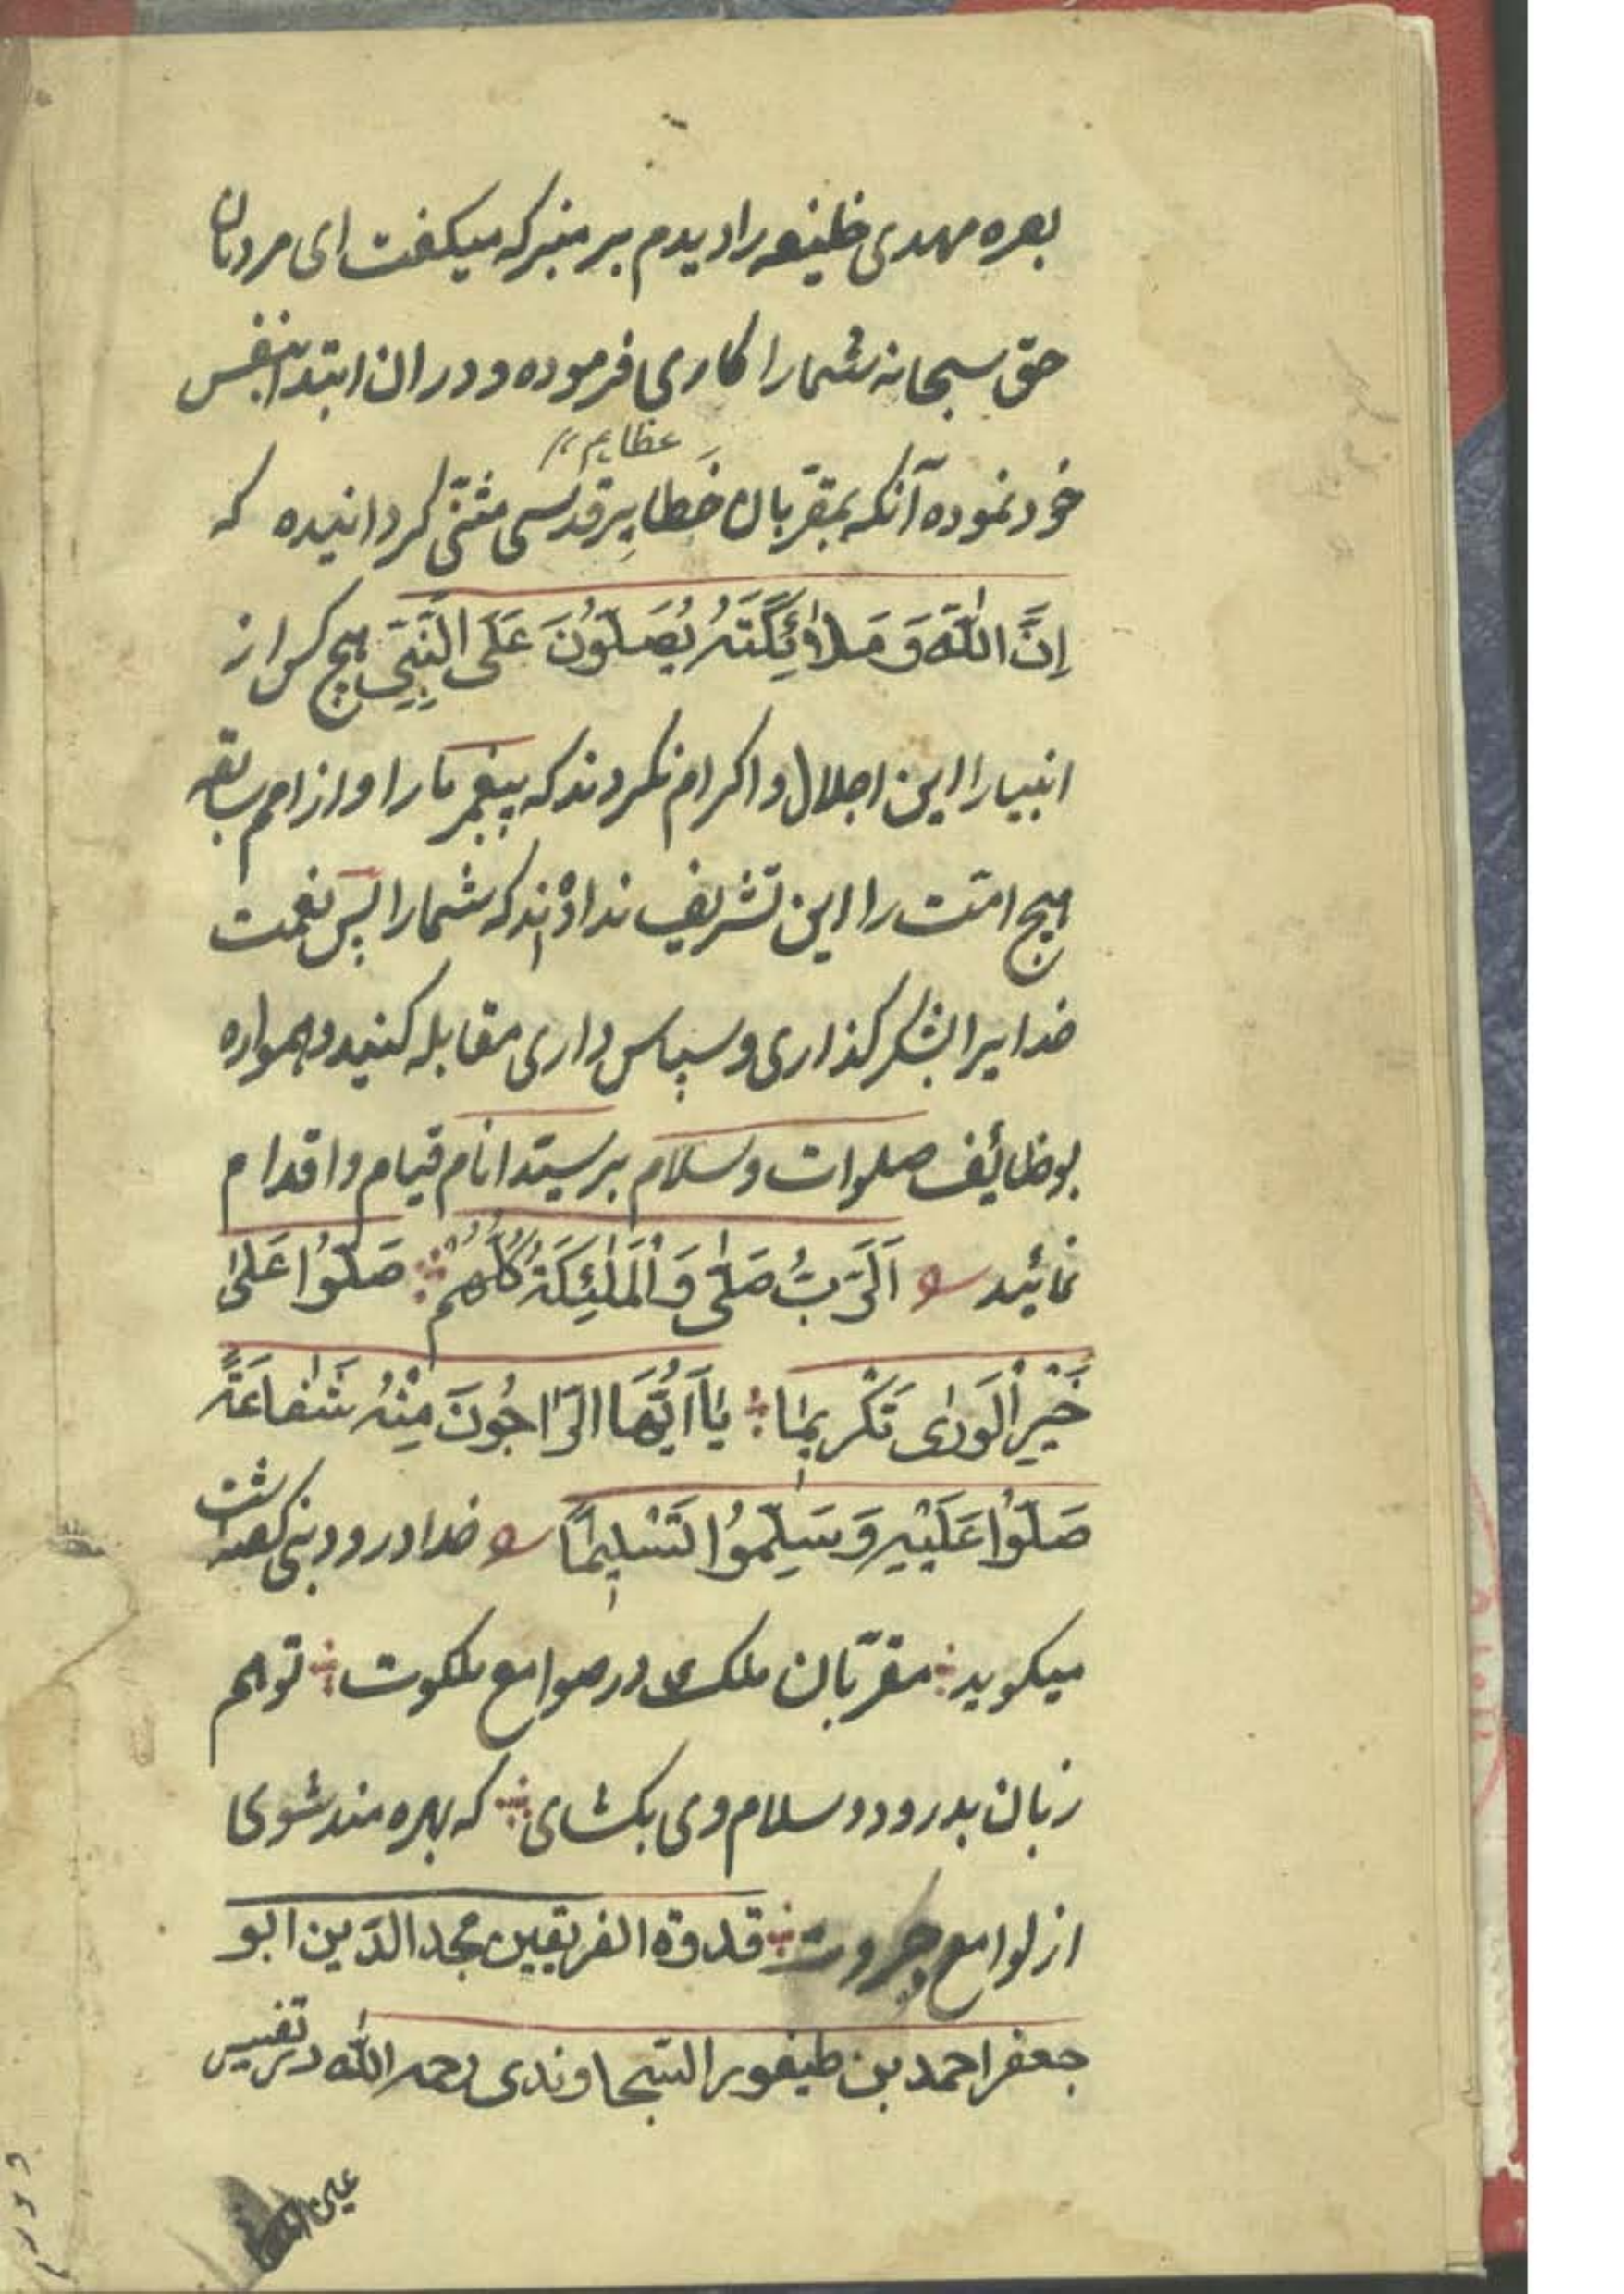 بصره مهدی خلیفه را دیدم بر منبر که میکفت ای مردمان
حق سبحانه شما را کاری فرموده و در ان ابتدا بنفس
عظایم
خود نموده آنکه بمقربان خَطایرِ قدسی مثنّی کردانیده که
اِنَّ اللّٰهَ وَ مَلاٰئِکَتَهُ یُصَلّوُنَ عَلَی النَّبِیِّ هیچ کس از
انبیا را این اجلال و اکرام نکردند که پیغمبر ما را و از امم سابقه
هیچ امّت را این تشریف نداده‌اند که شما را پس نعمت
خدایرا بشکر کذاری و سپاس داری مقابله کنید و همواره
بوظائف صلوات و سلام بر سیّد انام قیام و اقدام
نمائید اَلرَّبُّ صَلّٰی وَ الْمَلٰئِکَةُ کُلُّهُمْ صَلّوُا عَلیٰ
خَیْرِ الْوَریٰ تَکْریمٰا یٰا اَیُّهَا الرّٰاجُونَ مِنْهُ شَفٰاعَةً
صَلّوُا عَلَیْهِ وَ سَلِّموُا تَسْلیمٰاً خدا درود نبی کفت
میکوید مقربّان ملک در صوامع ملکوت تو هم
زبان بدرود و سلام وی بکشای که بهره مند شوی
از لوامع جبروت قدوة الفریقین مجد الدّین ابو
جعفر احمد بن طیفور السّجاوندی رحمه اللّٰه در تفسیر
عین